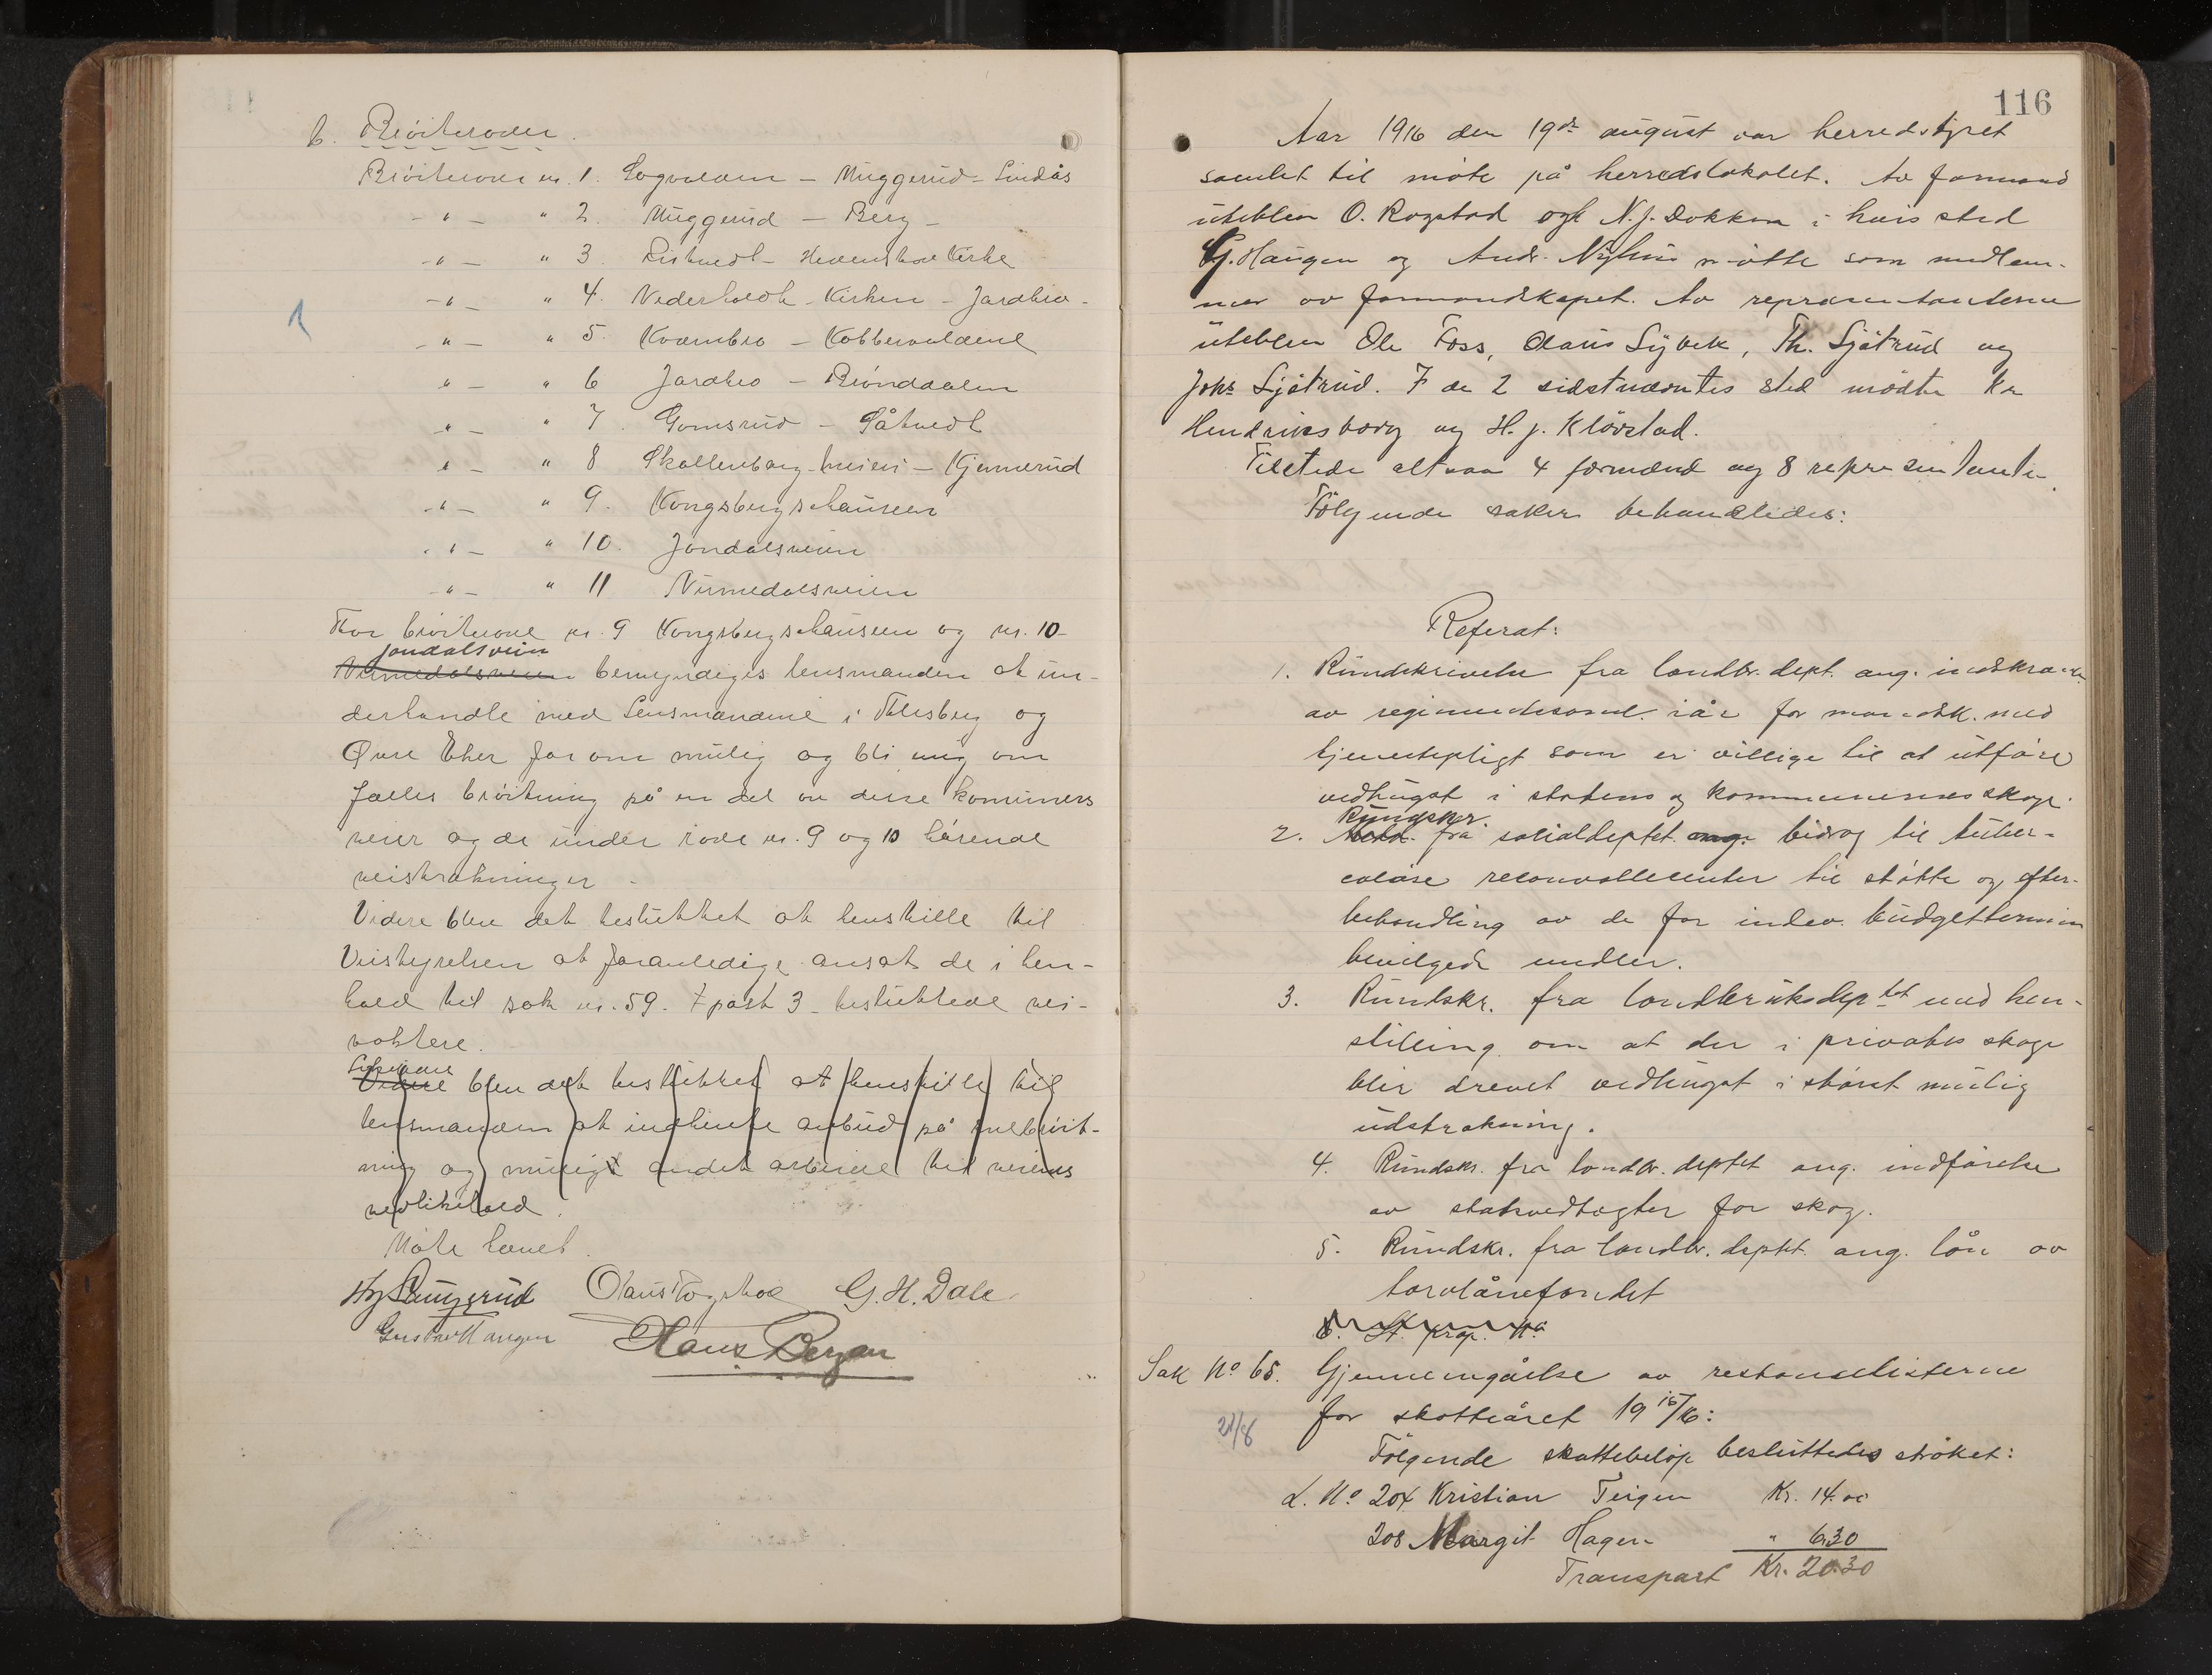 b. Brøiteroder.
Brøiterode nr. 1. Sogvolden – Muggerud – Lindås
– " – " 2. Muggerud – Berg –
– " – " 3. Listuedt – Hevenskoe Kirke
– " – " 4. Vederholdt – Kirken – Jarobro –
– " – " 5. Kvernbro – Kobbervoldene
" – " 6 Jarobro – Brønddalen
– " – " 7. Gomsrud – Såtvedt
" – " 8 Skollenborg meieri – Gjennerud
– " – " 9. Kongsbergschauseen
– " – " 10. Jondalsveien
– " – " 11 Numedalsveien
For brøiterode nr. 9 Kongsbergschauseen og nr. 10
Jondalsvein
Numedalsveien bemyndiges lensmanden at un-
derhandle med Lensmændene i Flesberg og
Øvre Eker for om mulig og bli enig om
fælles brøitning på en del av disse komuners
veier og de under rode nr. 9 og 10 hørende
veistrækninger –
Videre blev det besluttet at henstille til
Veistyrelsen at foranledige ansat de i hen-
hold til sak nr. 59. post 3 – besluttede vei-
voktere.
Likeledes
Videre blev det besluttet at henstille til
lensmanden at indhente anbud på snebrøit-
ning og muligt andet arbeide til veienes
vedlikehold.
Møte hævet.
Olaus G. H. Dale
Gustav Haugen Hans Bergan
116
Aar 1916 den 19de august var herredstyret
samlet til møte på herredslokalet. Av formænd
uteblev O. Rogstad og N. J. Dokken i hvis sted
G. Haugen og Andr. Nyhus møtte som medlem-
mer av formandskapet. Av representanterne
uteblev Ole Foss, Olaus Lybek, Th. Sjøtrud og
Johs Sjøtrud. F de 2 sidstnævntes sted mødte
Hendriksborg og H. J. Kløvstad.
Tilstede altsaa 4 formænd og 8 representante.
Følgende saker behandledes:
Referat:
1. Rundskrivelse fra landbr. dept. ang. indskrænk.
av regimentssaml. iår for mandsk. med
tjenestepligt som er villige til at utføre
vedhugst i statens og kommunernes skoge.
Rundskr.
2. fra socialdeptet ang. bidrag til tuber-
culøse reconvallecenter til støtte og efter-
behandling av de for indev. budgettermin
bevilgede midler.
3. Rundskr. fra landbruksdeptet med hen-
stilling om at der i privates skoge
blir drevet vedhugst i størst mulig
udstrækning.
4. Rundskr. fra landbr. deptet ang. indførelse
av statsvedtægter for skog.
5. Rundskr. fra landbr. deptet. ang. lån av
torvlånefondet
6. St. prop. No
Sak No 65. Gjennemgåelse av restanselisterne
for skatteåret 1915/16:
21/8
Følgende skattebeløp besluttedes strøket:
L. No 204 Kristian Teigen Kr. 14.00
208 Margit Hagen " 6.30
Transport Kr. 20.30